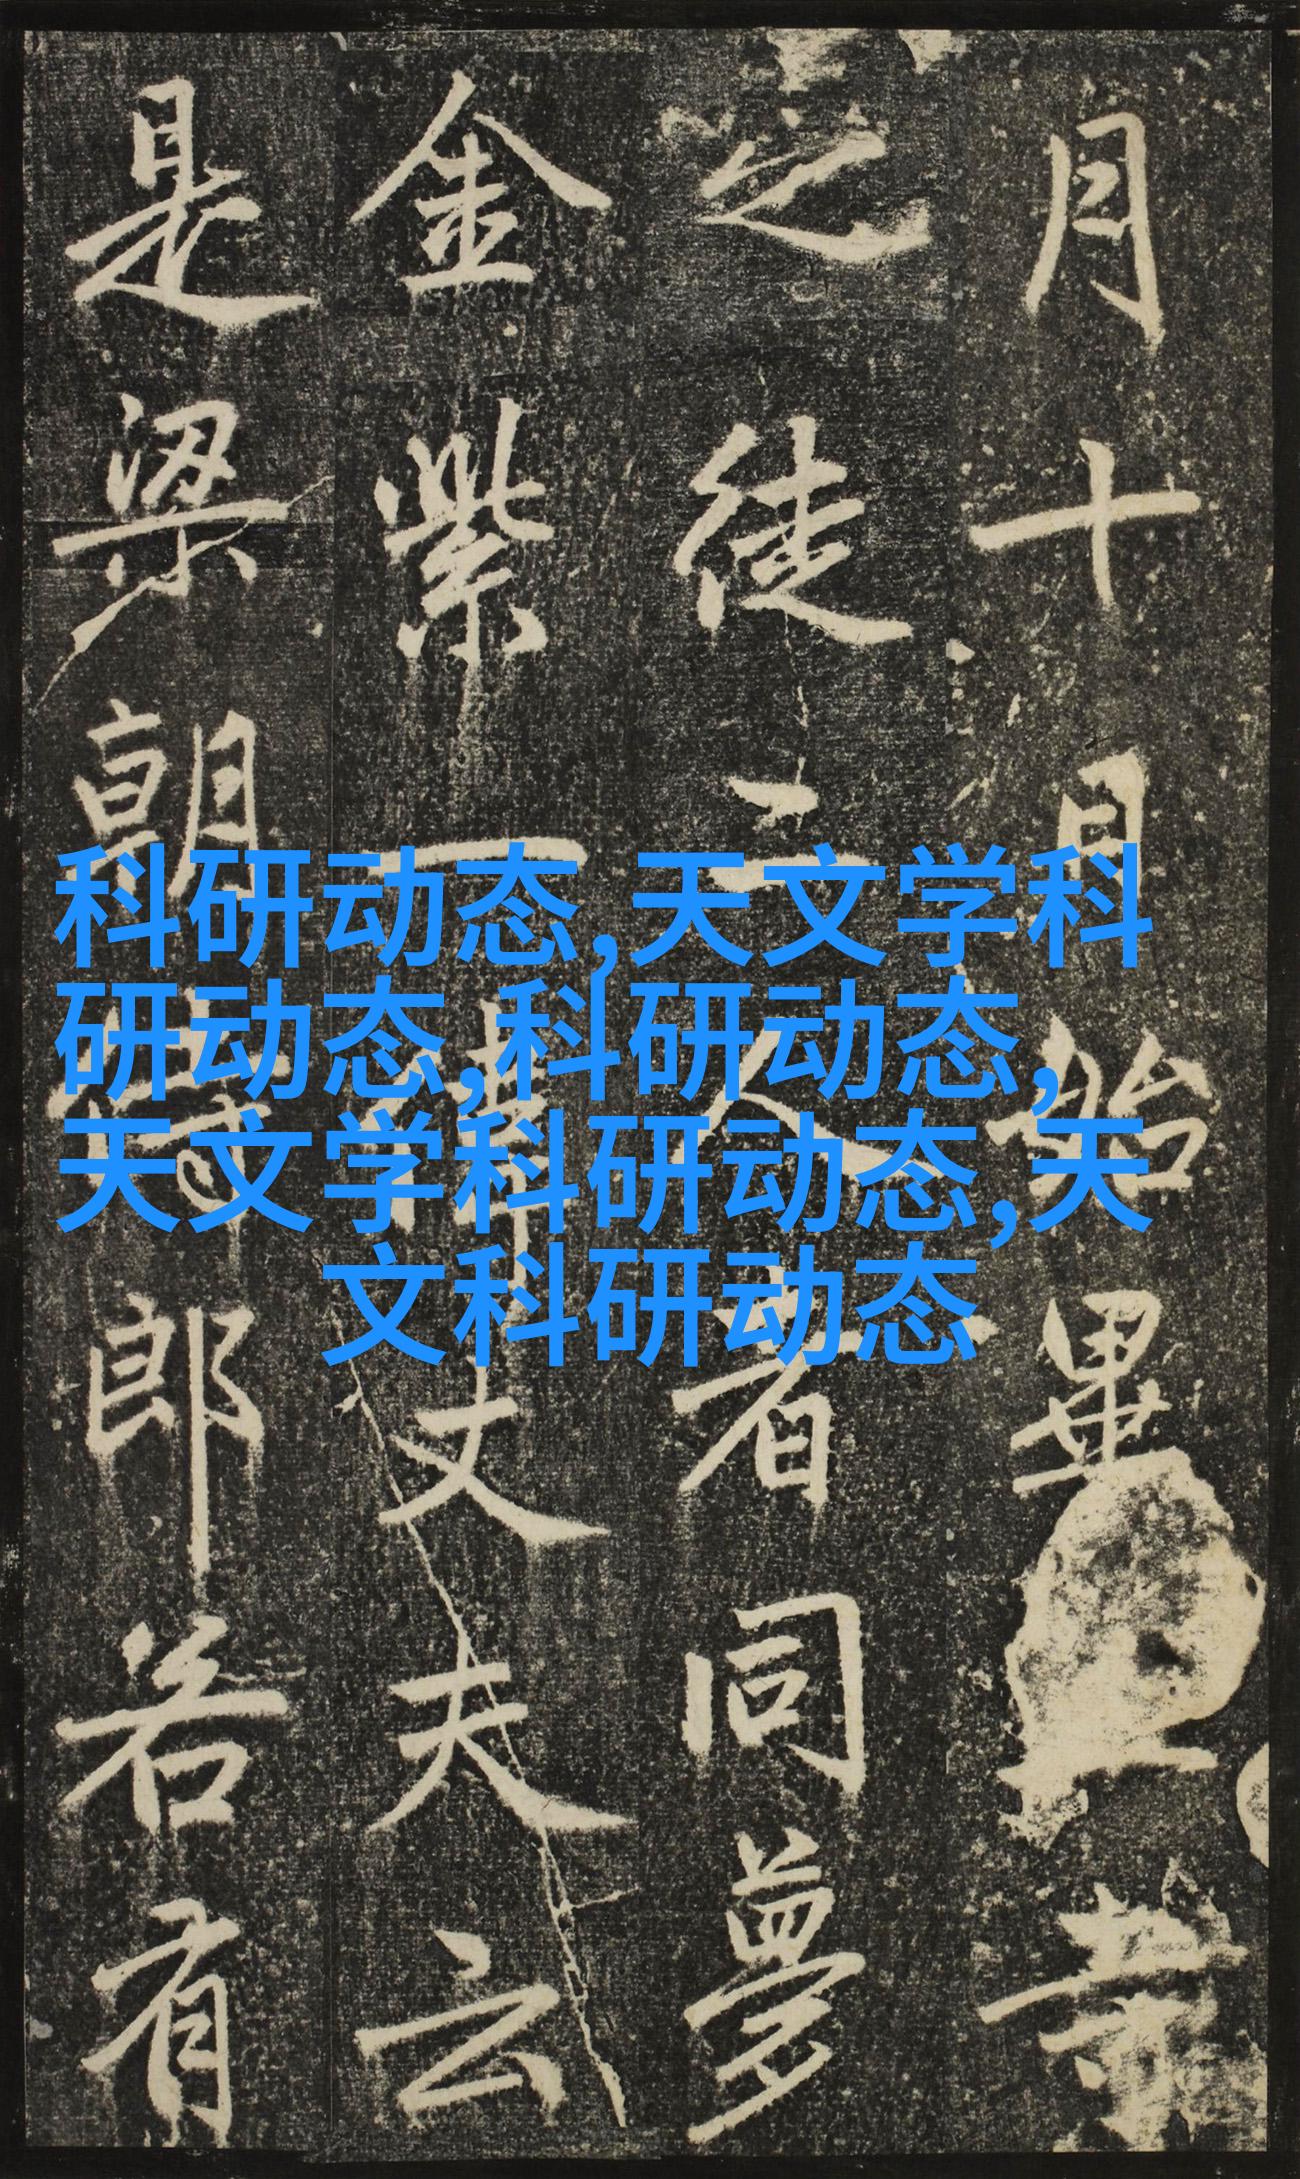 月十月始畢
之徒二人者同夢
金紫一偉丈夫云
是梁朝侍郎若有
科研动态,天文学科
研动态,科研动态,
天文学科研动态,天
文科研动态